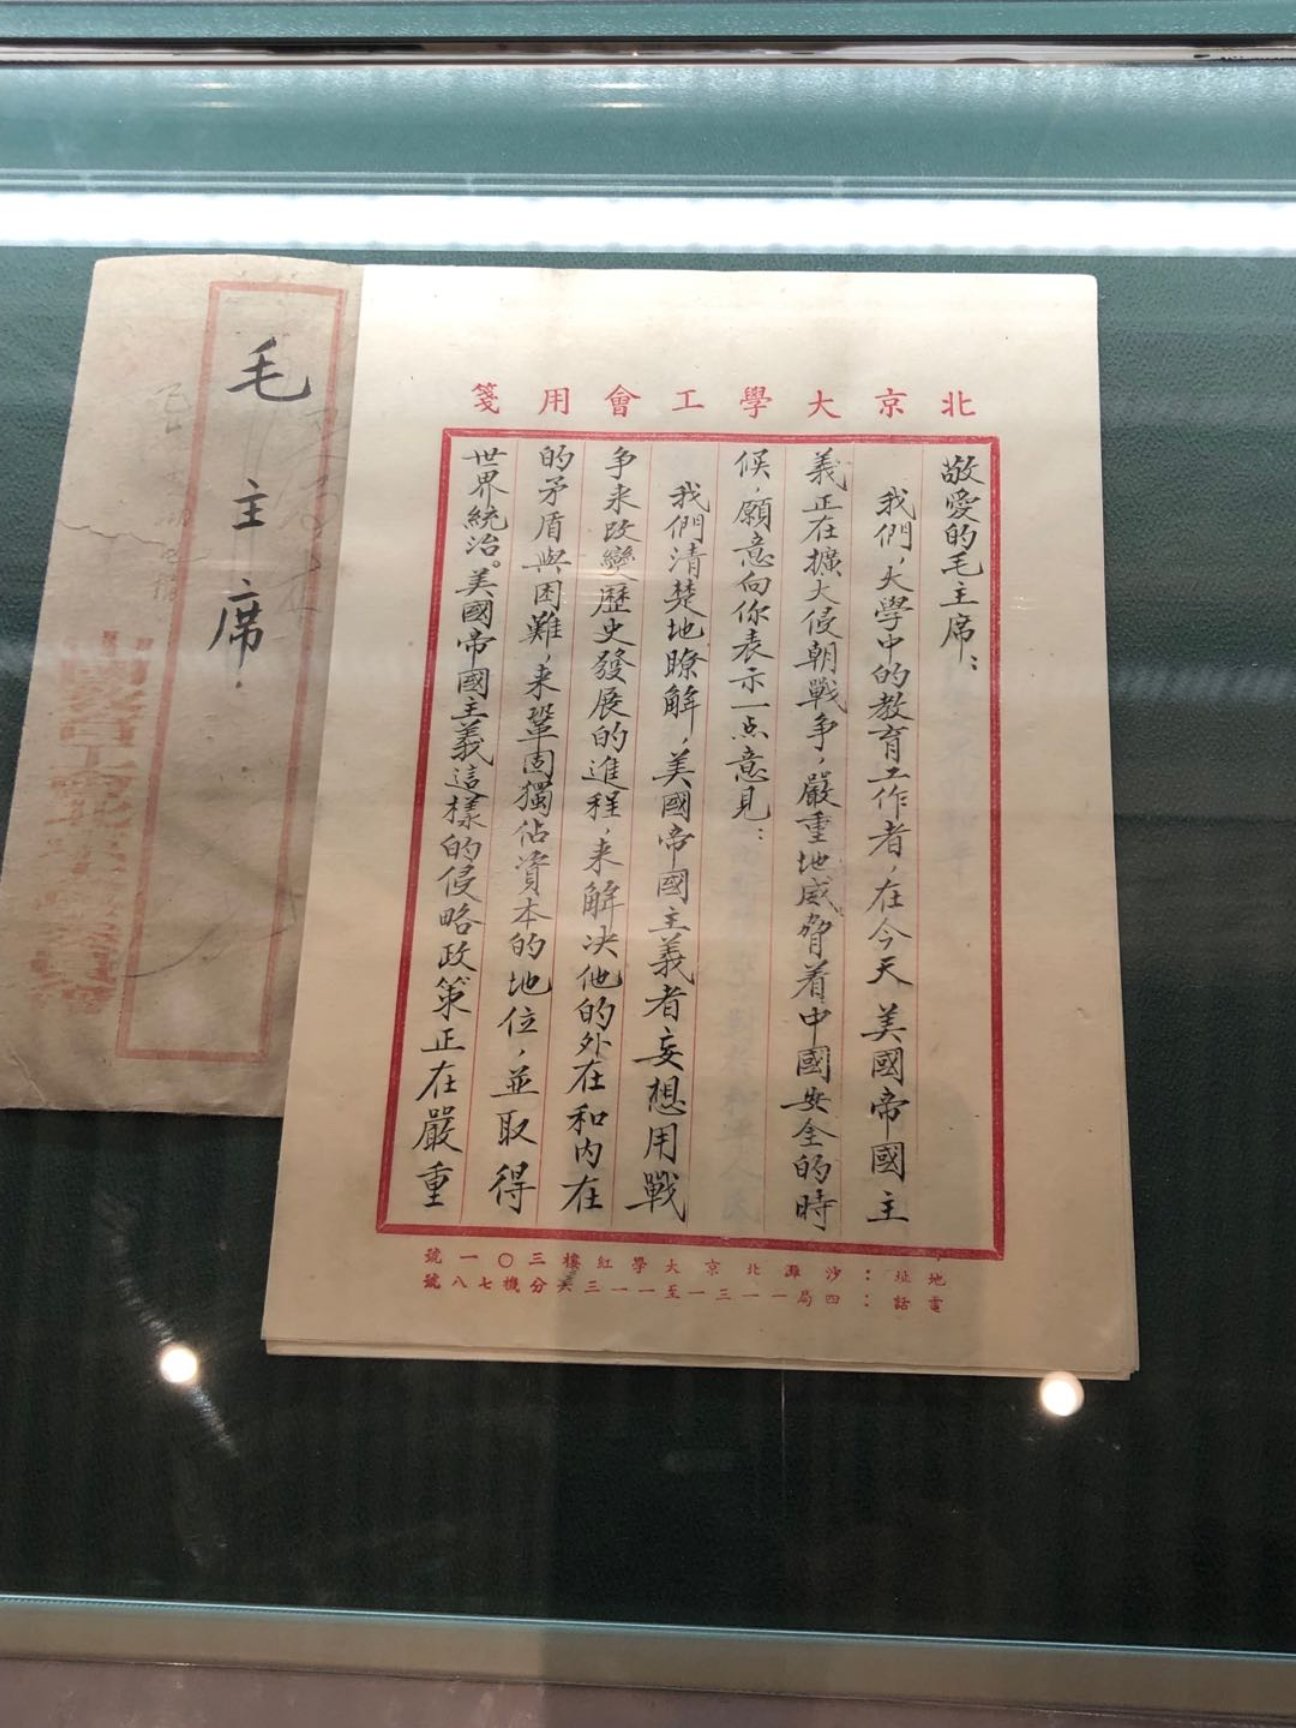 北京大學工會用箋
敬愛的毛主席：
我們，大學中的教育工作者，在今天美國帝國主
義正在擴大侵朝戰争，嚴重地威脅着中國安全的時
候，願意向你表示一点意見：
我們清楚地瞭解，美國帝國主義者妄想用戰
争来改變歷史發展的進程，来解决他的外在和内在
的矛盾與困難，来鞏固獨佔資本的地位，並取得
世界統治。美國帝國主義這樣的侵略政策正在嚴重
地址：沙灘北京大學紅樓三〇一號
電話：四局一一三一至一一三六分機七八號
毛主席